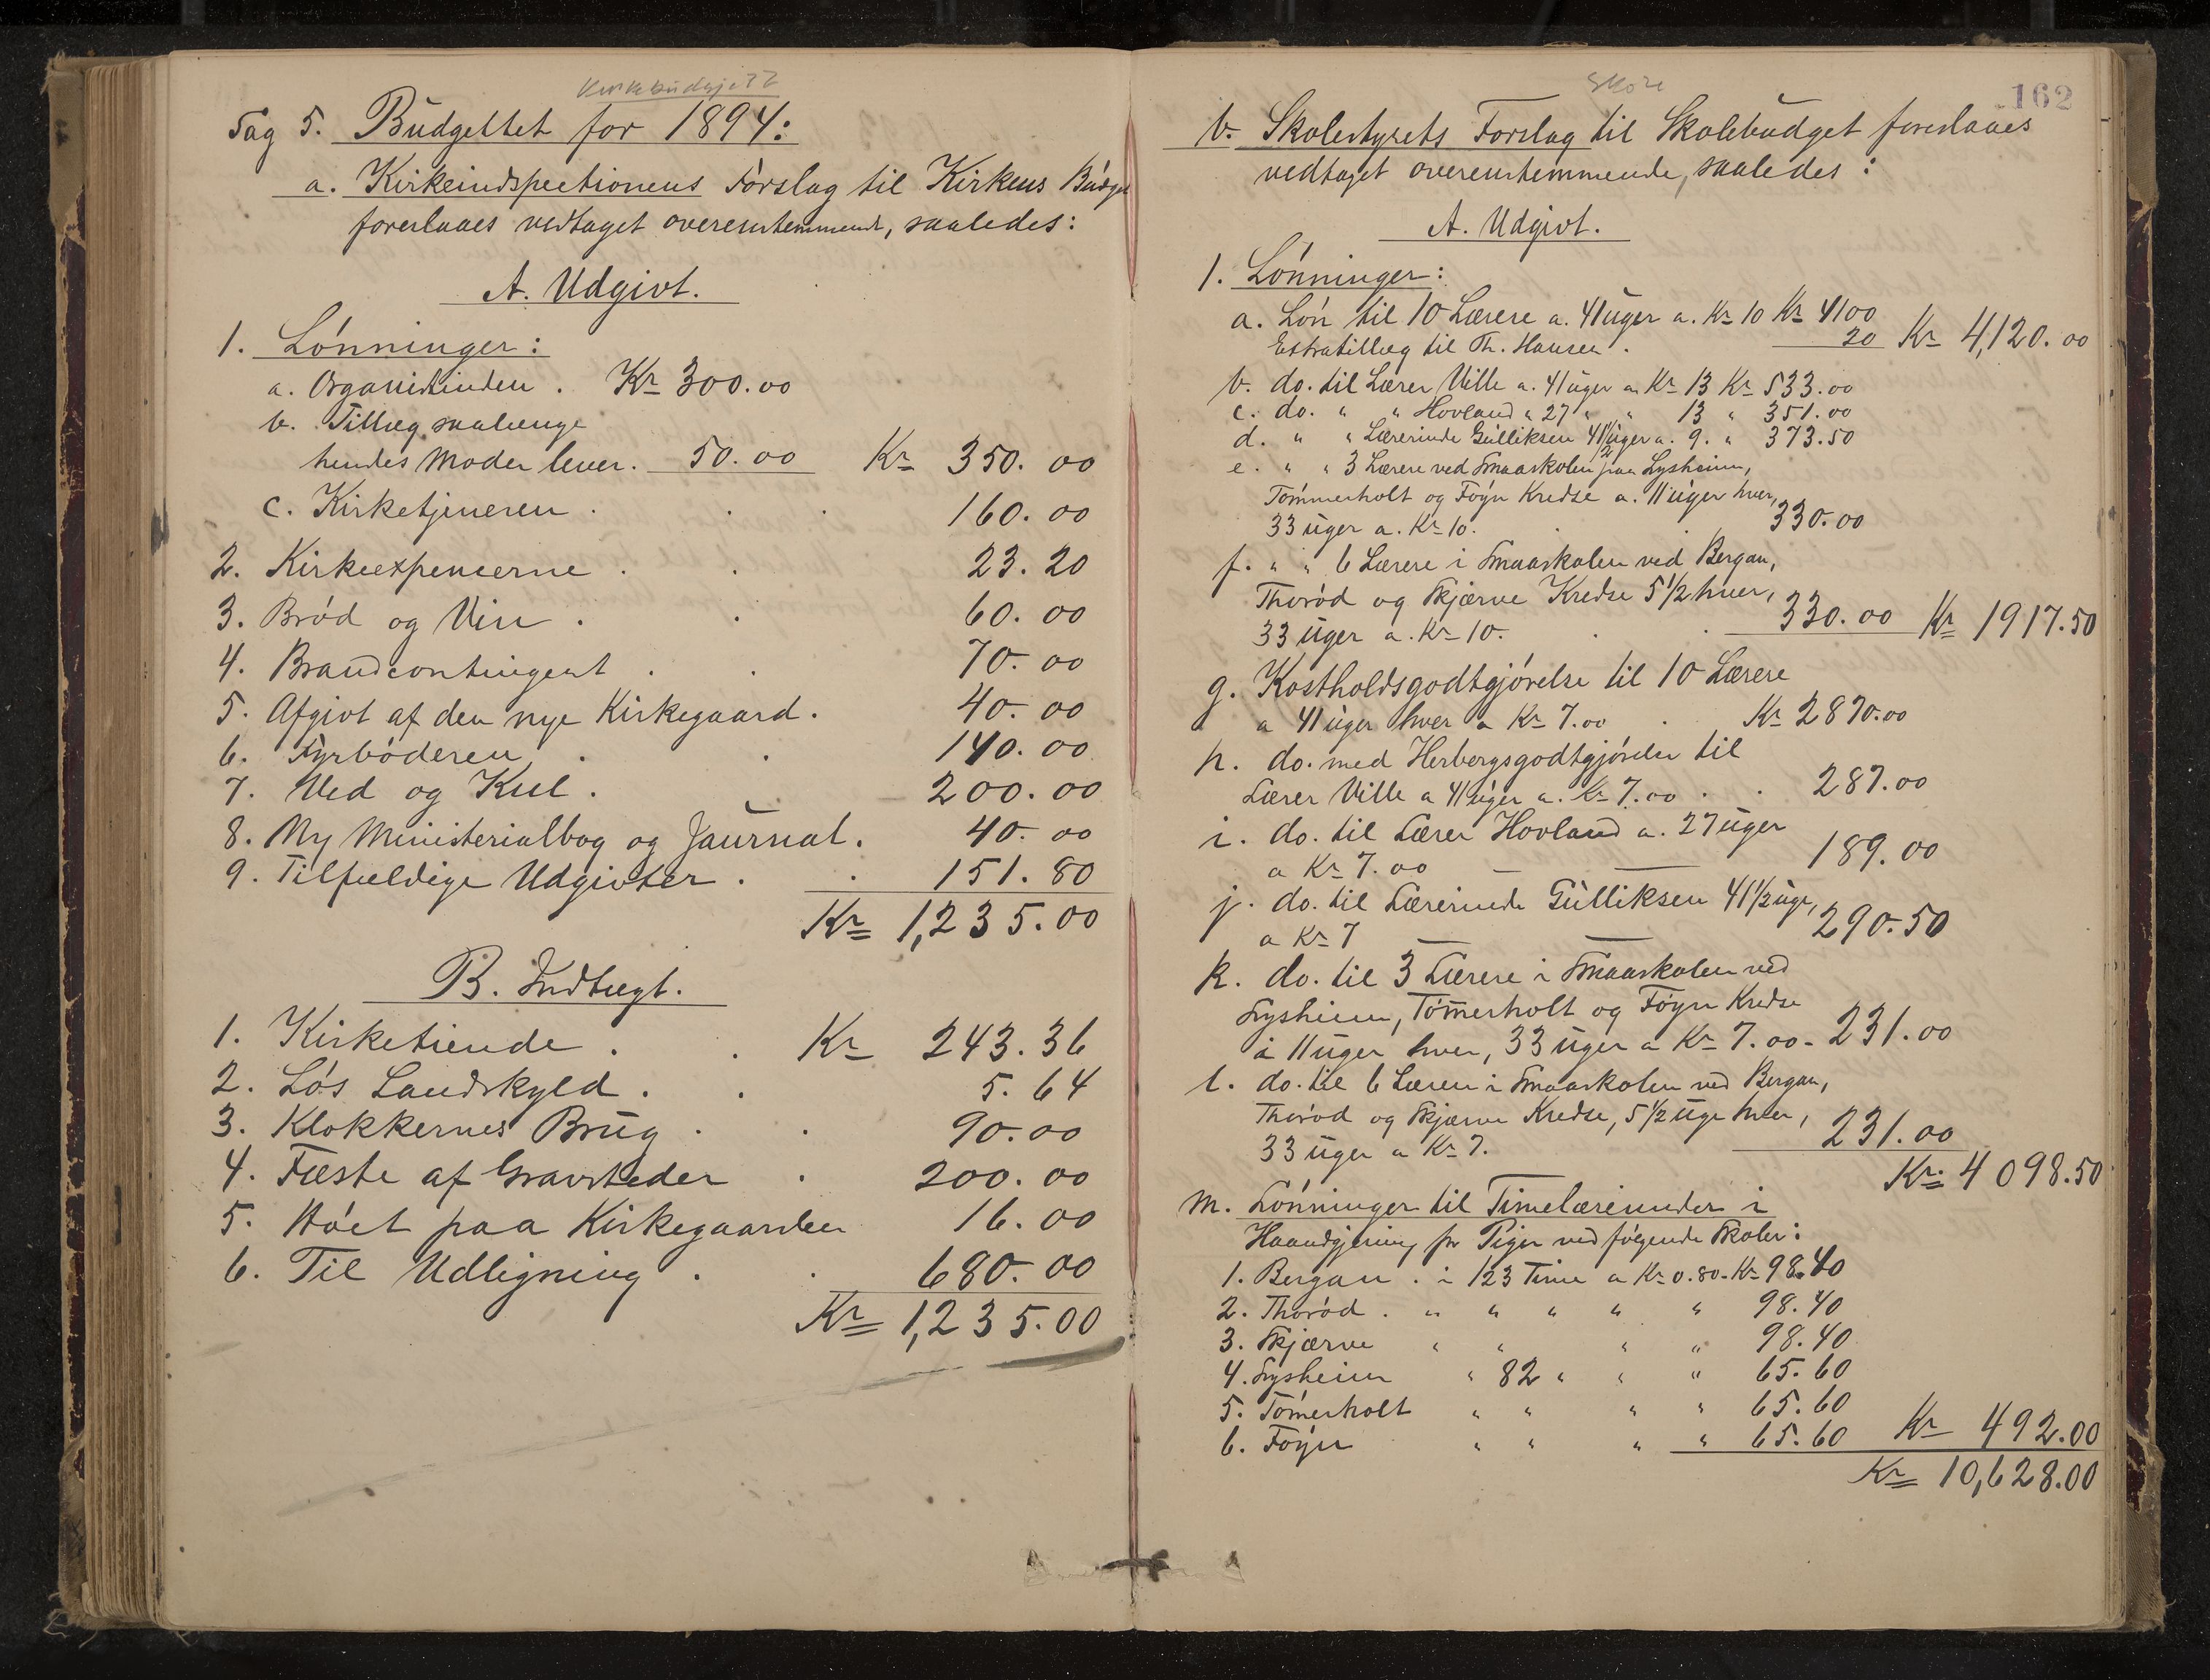 Kirkebudsjett
Sag 5. Budgettet for 1894:
a. Kirkeindspectionens Forslag til Kirkens Budget
foreslaaes vedtaget overensstemmende, saaledes:
A. Udgivt.
1. Lønninger:
a. Organistinden . Kr 300.00
b. Tillæg saalænge
hendes Moder lever. 50.00 Kr 350.00
c. Kirketjeneren . . . 160.00
2. Kirkeexpencerne . . 23.20
3. Brød og Vin . . 60.00
4. Brandcontingent . . 70.00
5. Afgivt af den nye Kirkegaard. 40.00
6. Fyrbøderen . . 140.00
7. Ved og Kul . 200.00
8. Ny Ministerialbog og Journal. 40.00
9. Tilfældige Udgivter . . 151.80
Kr 1,235.00
B. Indtægt.
1. Kirketiende . . Kr 243.36
2. Løs Landskyld . . 5.64
3. Klokkernes Brug . . 90.00
4. Fæste af Gravsteder . 200.00
5. Høet paa Kirkegaarden 16.00
6. Til Udligning . . 680.00
Kr 1,235.00
Skole
162
b. Skolestyrets Forslag til Skolebudget foreslaaes
vedtaget overensstemmende, saaledes:
A. Udgivt.
1. Lønninger:
a. Løn til 10 Lærere a. 41 uger a. Kr 10 Kr 4100
Extratillæg til Th. Hansen . 20 Kr 4,120.00
b. do. til Lærer Ville a. 41 uger a Kr 13 Kr 533.00
c. do. " " Hovland " 27 " " 13 " 351.00
d. " " Lærerinde Gulliksen 41 1/2 uger a. 9. " 373.50
e. " " 3 Lærere ved Smaaskolen paa Lysheim,
Tømmerholt og Føyn Kredse a. 11 uger hver,
33 uger a. Kr 10. . . 330.00
f. " " 6 Lærere i Smaaskolen ved Bergan,
Thorød og Skjærve Kredse 5 1/2 hver,
33 uger a. Kr 10. . . 330.00 Kr 1917.50
g. Kostholdsgodtgjørelse til 10 Lærere
a 41 uger hver a Kr 7.00 . Kr 2870.00
h. do. med Herbergsgodtgjørelse til
Lærer Ville a 41 uger a. Kr 7.00 . . 287.00
i. do. til Lærer Hovland a. 27 uger
a Kr 7.00 — — 189.00
j. do. til Lærerinde Gulliksen 41 1/2 uge,
a Kr 7 — — 290.50
k. do. til 3 Lærere i Smaaskolen ved
Lysheim, Tømerholt og Føyn Kredse
a 11 uger hver, 33 uger a Kr 7.00 - 231.00
l. do. til 6 Læren i Smaaskolen ved Bergan,
Thorød og Skjærve Kredse, 5 1/2 uge hver,
33 uger a Kr 7. 231.00
Kr. 4098.50
m. Lønninger til Timelærerinder i
Haandgjerning for Piger ved følgende Skoler:
1. Bergan . i 123 Time a Kr 0.80 - Kr 98.40
2. Thorød . " " " " " 98.40
3. Skjærve " " " " 98.40
4. Lysheim " 82 " " " 65.60
5. Tømerholt " " " " 65.60
6. Føyn " " " " 65.60 Kr 492.00
Kr 10,628.00